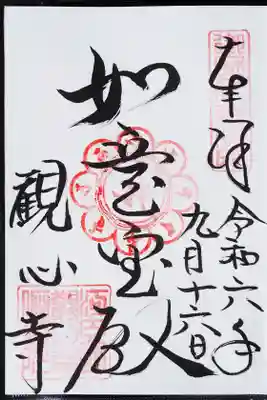 奉拝
令和六年
九月十六日
如意宝殿
観心寺